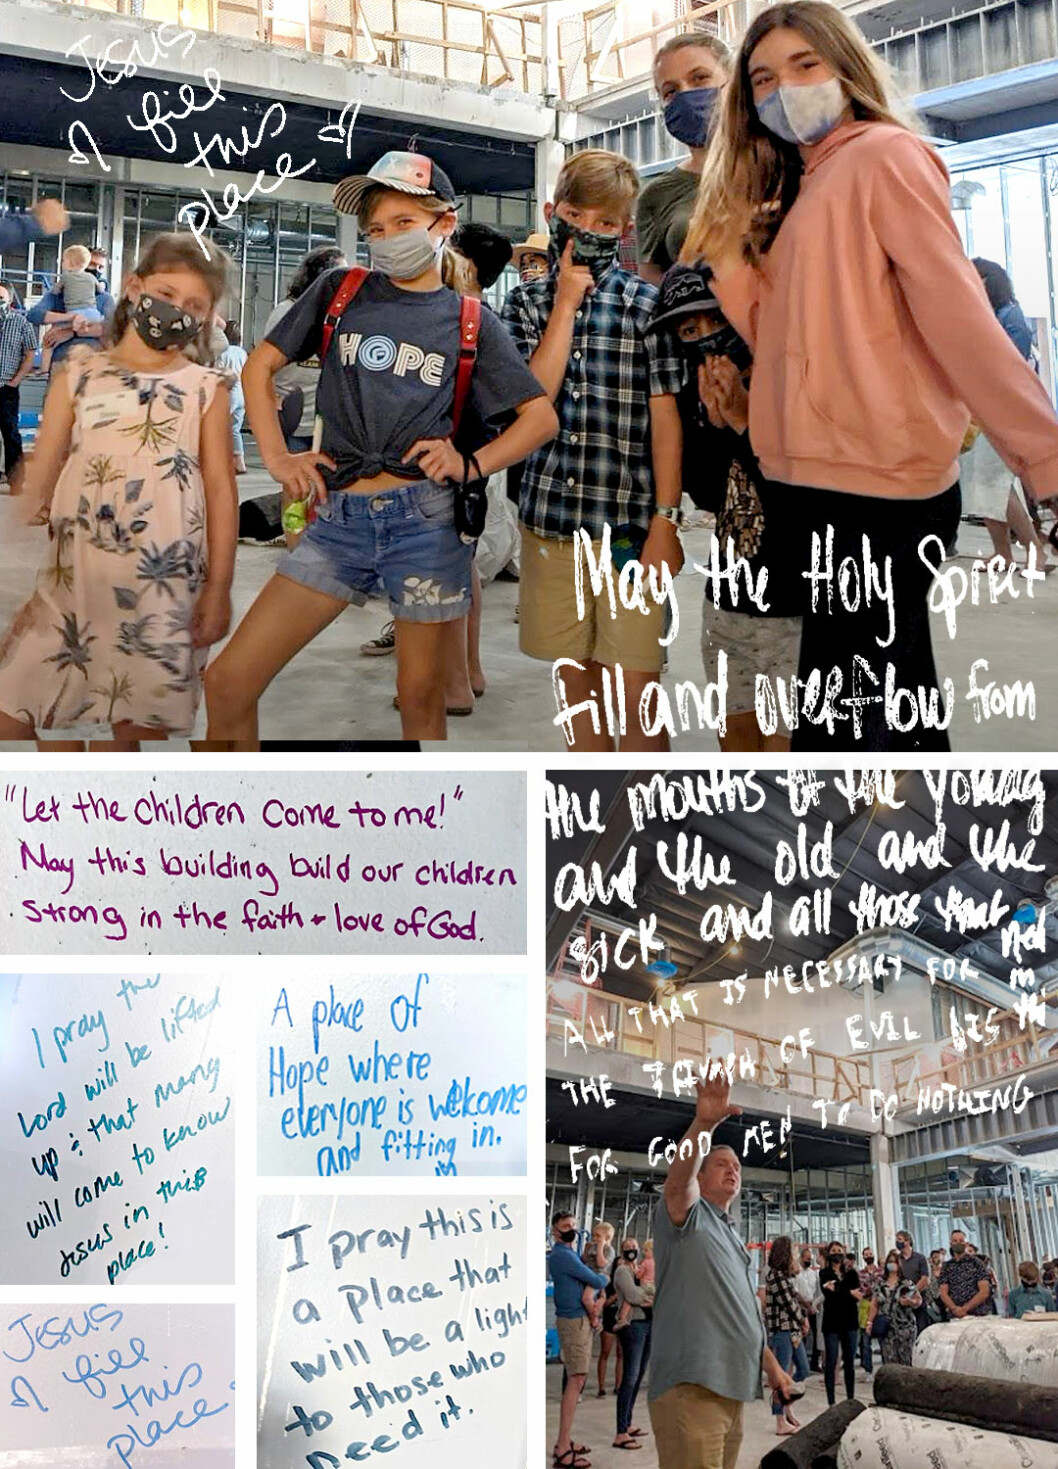 Jesus
fill
this
place
HOPE
May the Holy Spirit
fill and overflow from
the mouths of the young
and the old and the
sick and all those that
ALL THAT IS NECESSARY FOR
THE TRIUMPH OF EVIL IS
FOR GOOD MEN TO DO NOTHING
"Let the children come to me!"
May this building build our children
strong in the faith + love of God.
I pray the
Lord will be lifted
up & that many
will come to know
Jesus in this
place!
A place of
Hope where
everyone is welcome
and fitting in.
in
I pray this is
a place that
will be a light
to those who
need it.
Jesus
fill
this
place